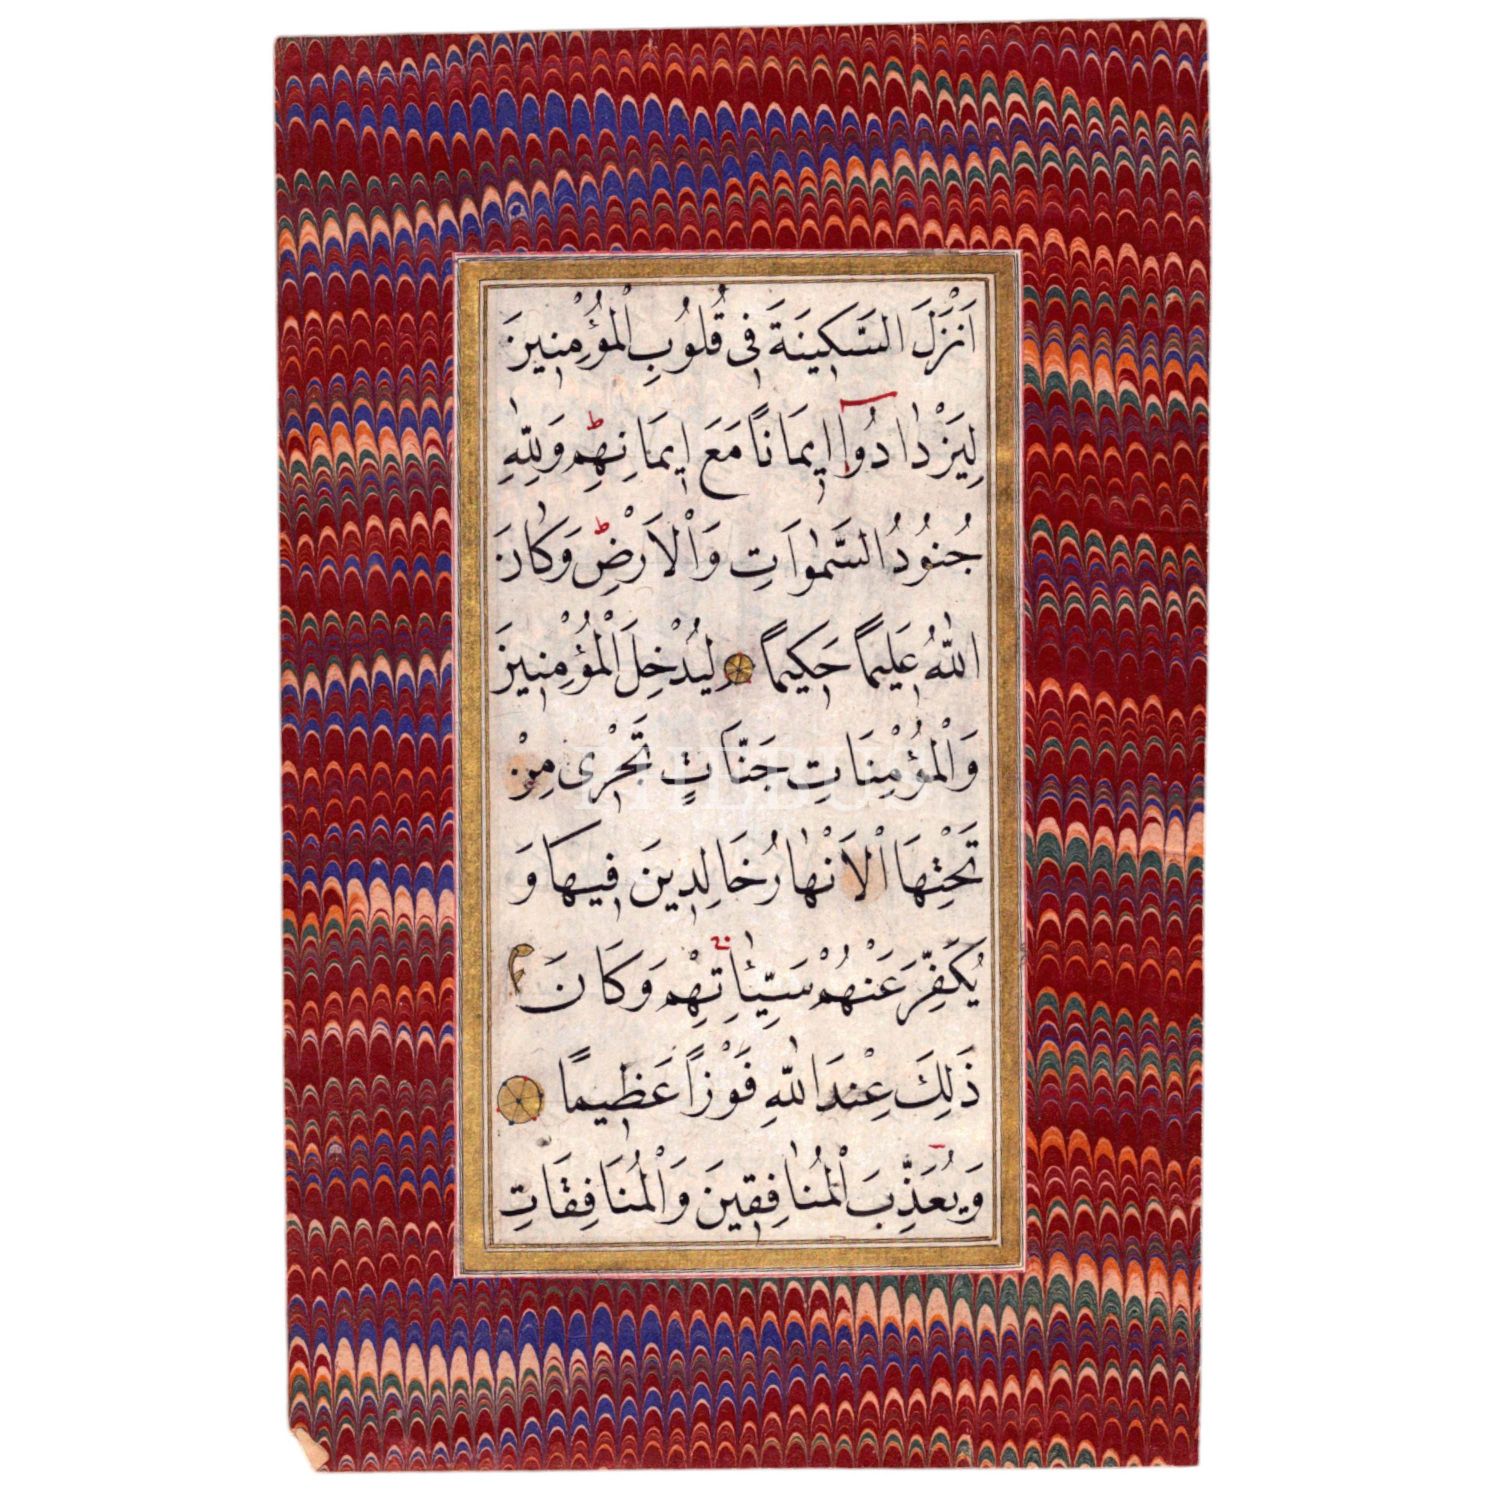 اَنْزَلَ السَّكِينَةَ فِى قُلُوبِ الْمُؤْمِنِينَ
لِيَزْدَادُوآ اِيمَانًا مَعَ اِيمَانِهِمْ ط وَلِلّٰهِ
جُنُودُ السَّمٰوَاتِ وَالْاَرْضِ ط وَكَانَ
اللّٰهُ عَلِيمًا حَكِيمًا لِيُدْخِلَ الْمُؤْمِنِينَ
وَالْمُؤْمِنَاتِ جَنَّاتٍ تَجْرِى مِنْ
تَحْتِهَا الْاَنْهَارُ خَالِدِينَ فِيهَا وَ
يُكَفِّرَ عَنْهُمْ سَيِّئَاتِهِمْ وَكَانَ
ذٰلِكَ عِنْدَ اللّٰهِ فَوْزًا عَظِيمًا
وَيُعَذِّبَ الْمُنَافِقِينَ وَالْمُنَافِقَاتِ
PHEBUS